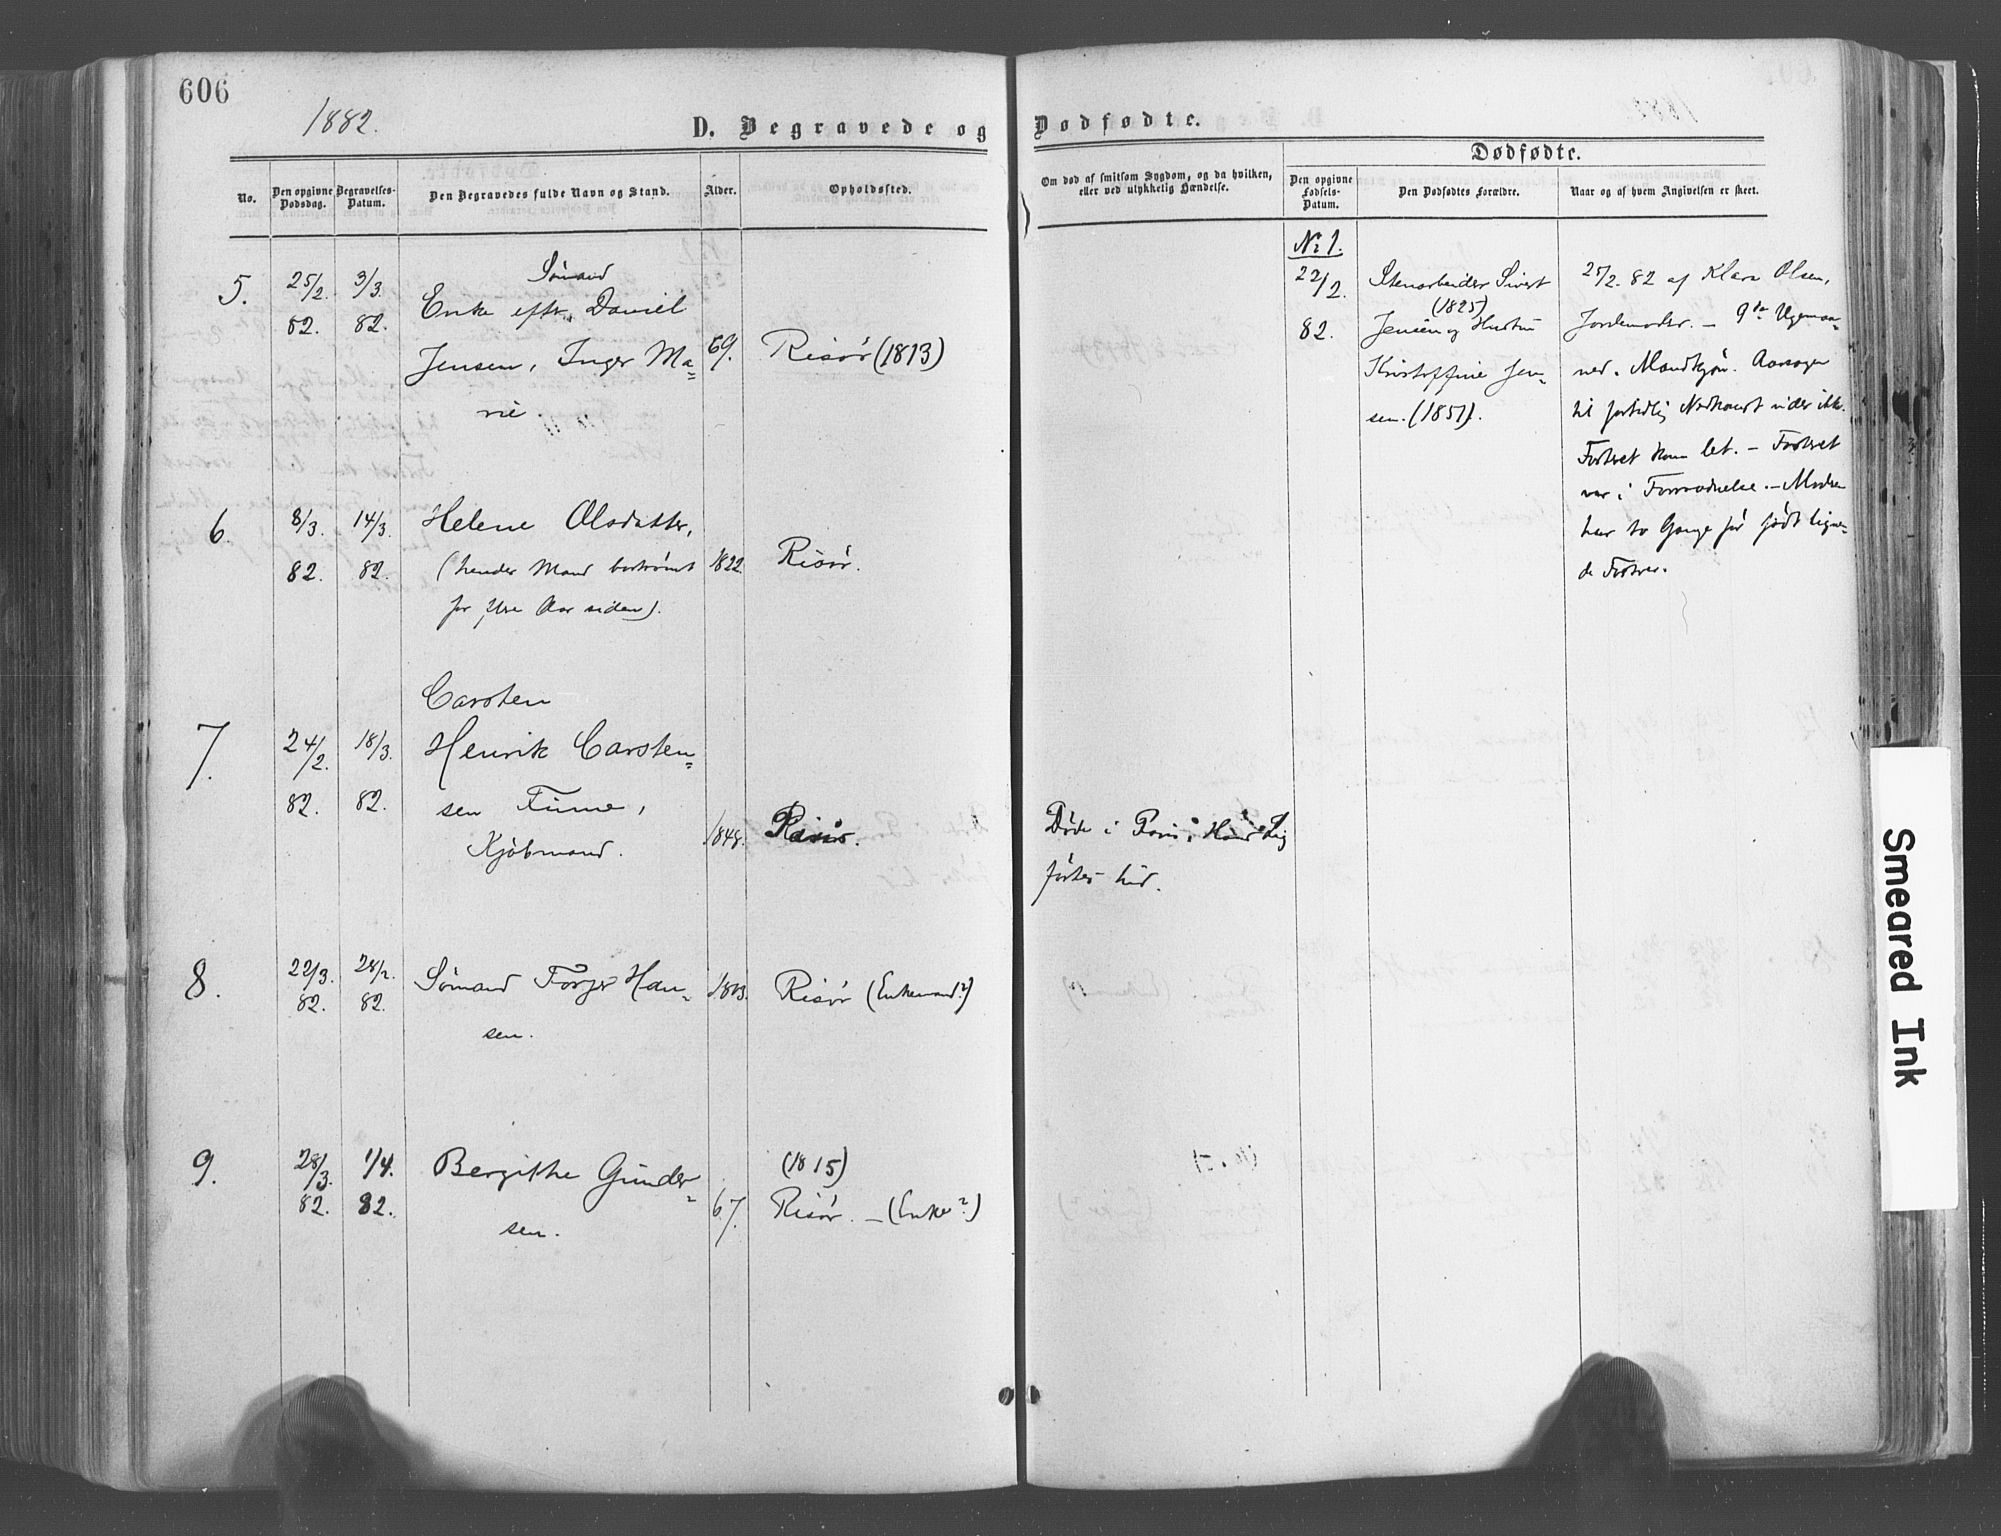 606
1882.
D. Begravede og Dødfødte.
Dødfødte.
No.
Den opgivne Dødsdag.
Begravelses-Datum.
Den Begravedes fulde Navn og Stand.
Alder.
Opholdssted.
Om død af smitsom Sygdom, og da hvilken,
eller ved ulykkelig Hændelse.
Den opgivne Fødsels-Datum.
Den Dødfødtes Forældre.
Naar og af hvem Angivelsen er skeet.
5.
25/2. 82.
3/3. 82.
Sömand
Enke eftr. Daniel
Jensen, Inger Ma=
rie.
69.
Risør (1813)
6.
8/3. 82.
14/3. 82.
Helene Olsdatter,
(hendes Mand bortrømt
for flre Aar siden).
1822.
Risør.
7.
24/2. 82.
18/3. 82.
Carsten
Henrik Carsten=
sen Finne,
Kjøbmand.
1848.
Risør.
Døde i Paris; Hans Lig
førtes hid.
8.
22/3. 82.
28/2. 82.
Sømand Torjer Han=
sen.
1803.
Risør (Enkemand?)
9.
28/3. 82.
1/4. 82.
Bergithe Gunder=
sen.
67.
(1815)
Risør. — (Enke?)
No 1.
22/2. 82.
Stenarbeider Sivert
(1825)
Jensen og Hustru
Kristoffine Jen=
sen. (1851).
25/2. 82 af Klara Olsen,
Jordemoder. — 9de Ugemaa=
ned. Mandkjøn. Aarsagen
til fortidlig Nedkomst vides ikke.
Fosteret kom let. — Fosteret
var i Forraadnelse. — Moderen
har to Gange før født lignen=
de Fostre.
Smeared Ink